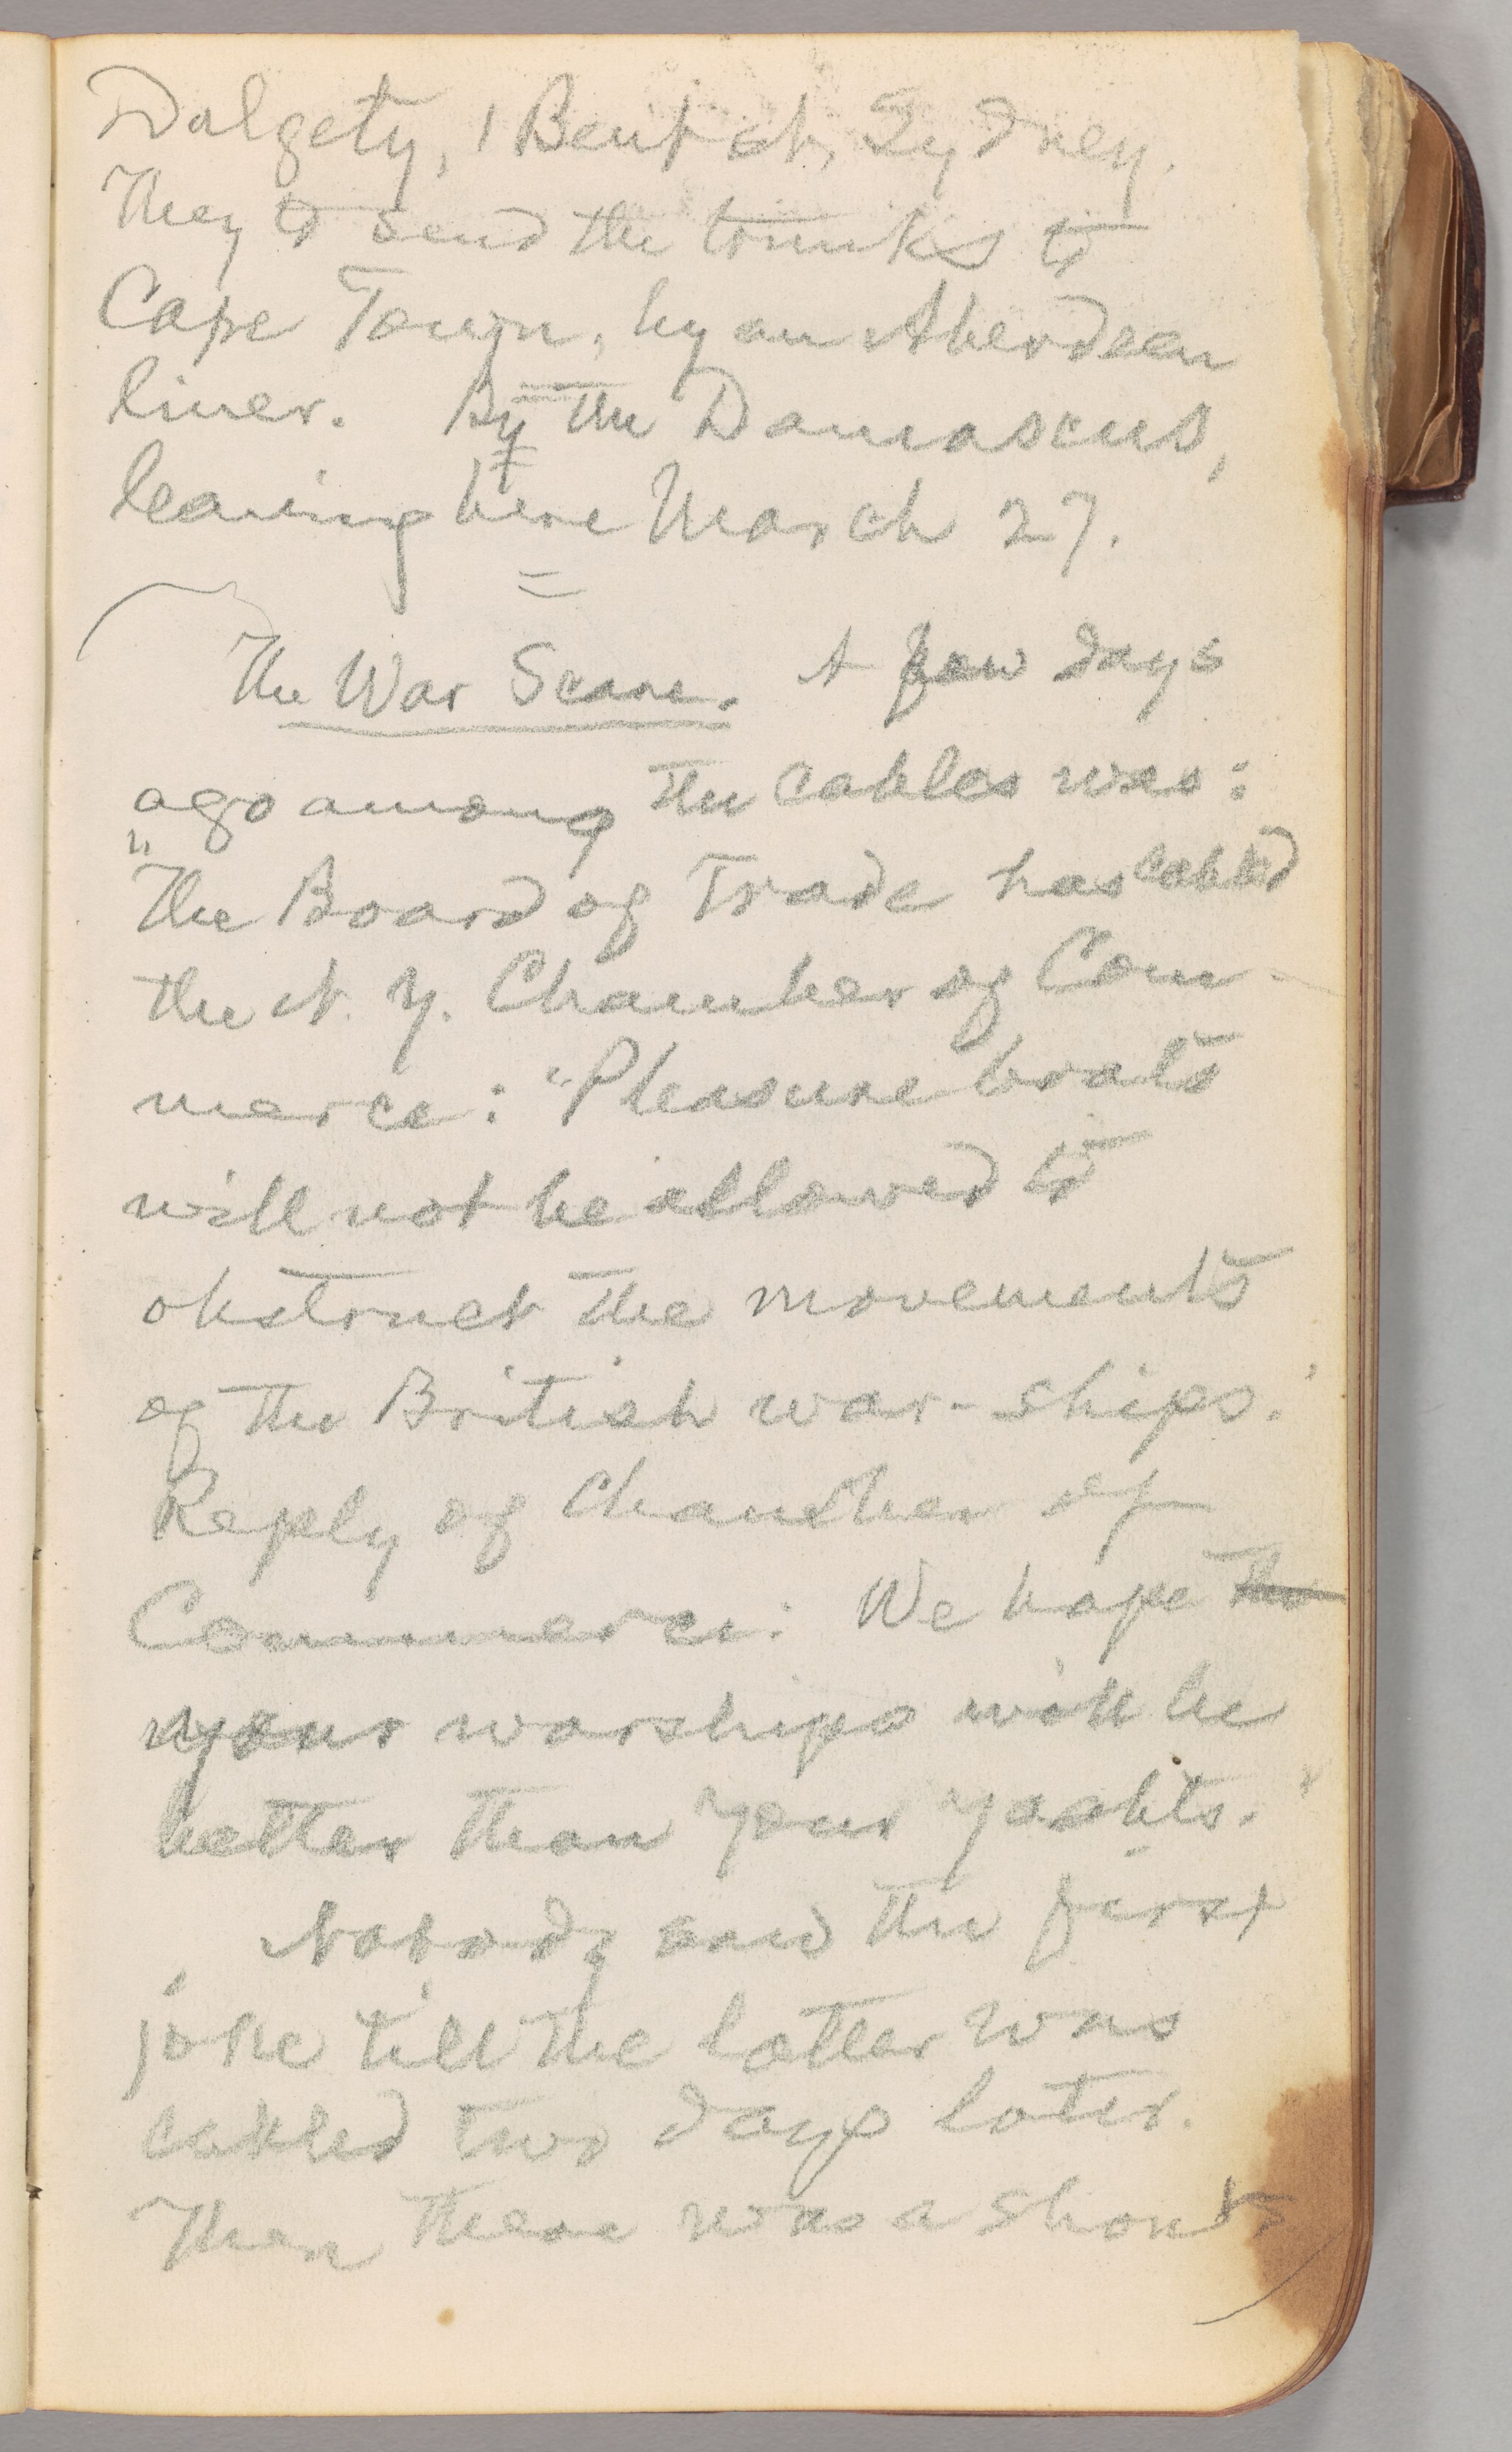 Dalgety, 1 Bent st, Sydney.
They to send the trunks to
Cape Town, by an Aberdeen
liner. By the Damascus,
leaving here March 27.
=
The War Scare. A few days
ago among the cables was:
"The Board of Trade has cabled
the N. Y. Chamber of Com-
merce: "Pleasure boats
will not be allowed to
obstruct the movements
of the British war-ships.'
Reply of Chamber of
Commerce: We hope the
your warships will be
better than your yachts.'
Nobody saw the first
joke till the latter was
cabled two days later.
Then there was a shout